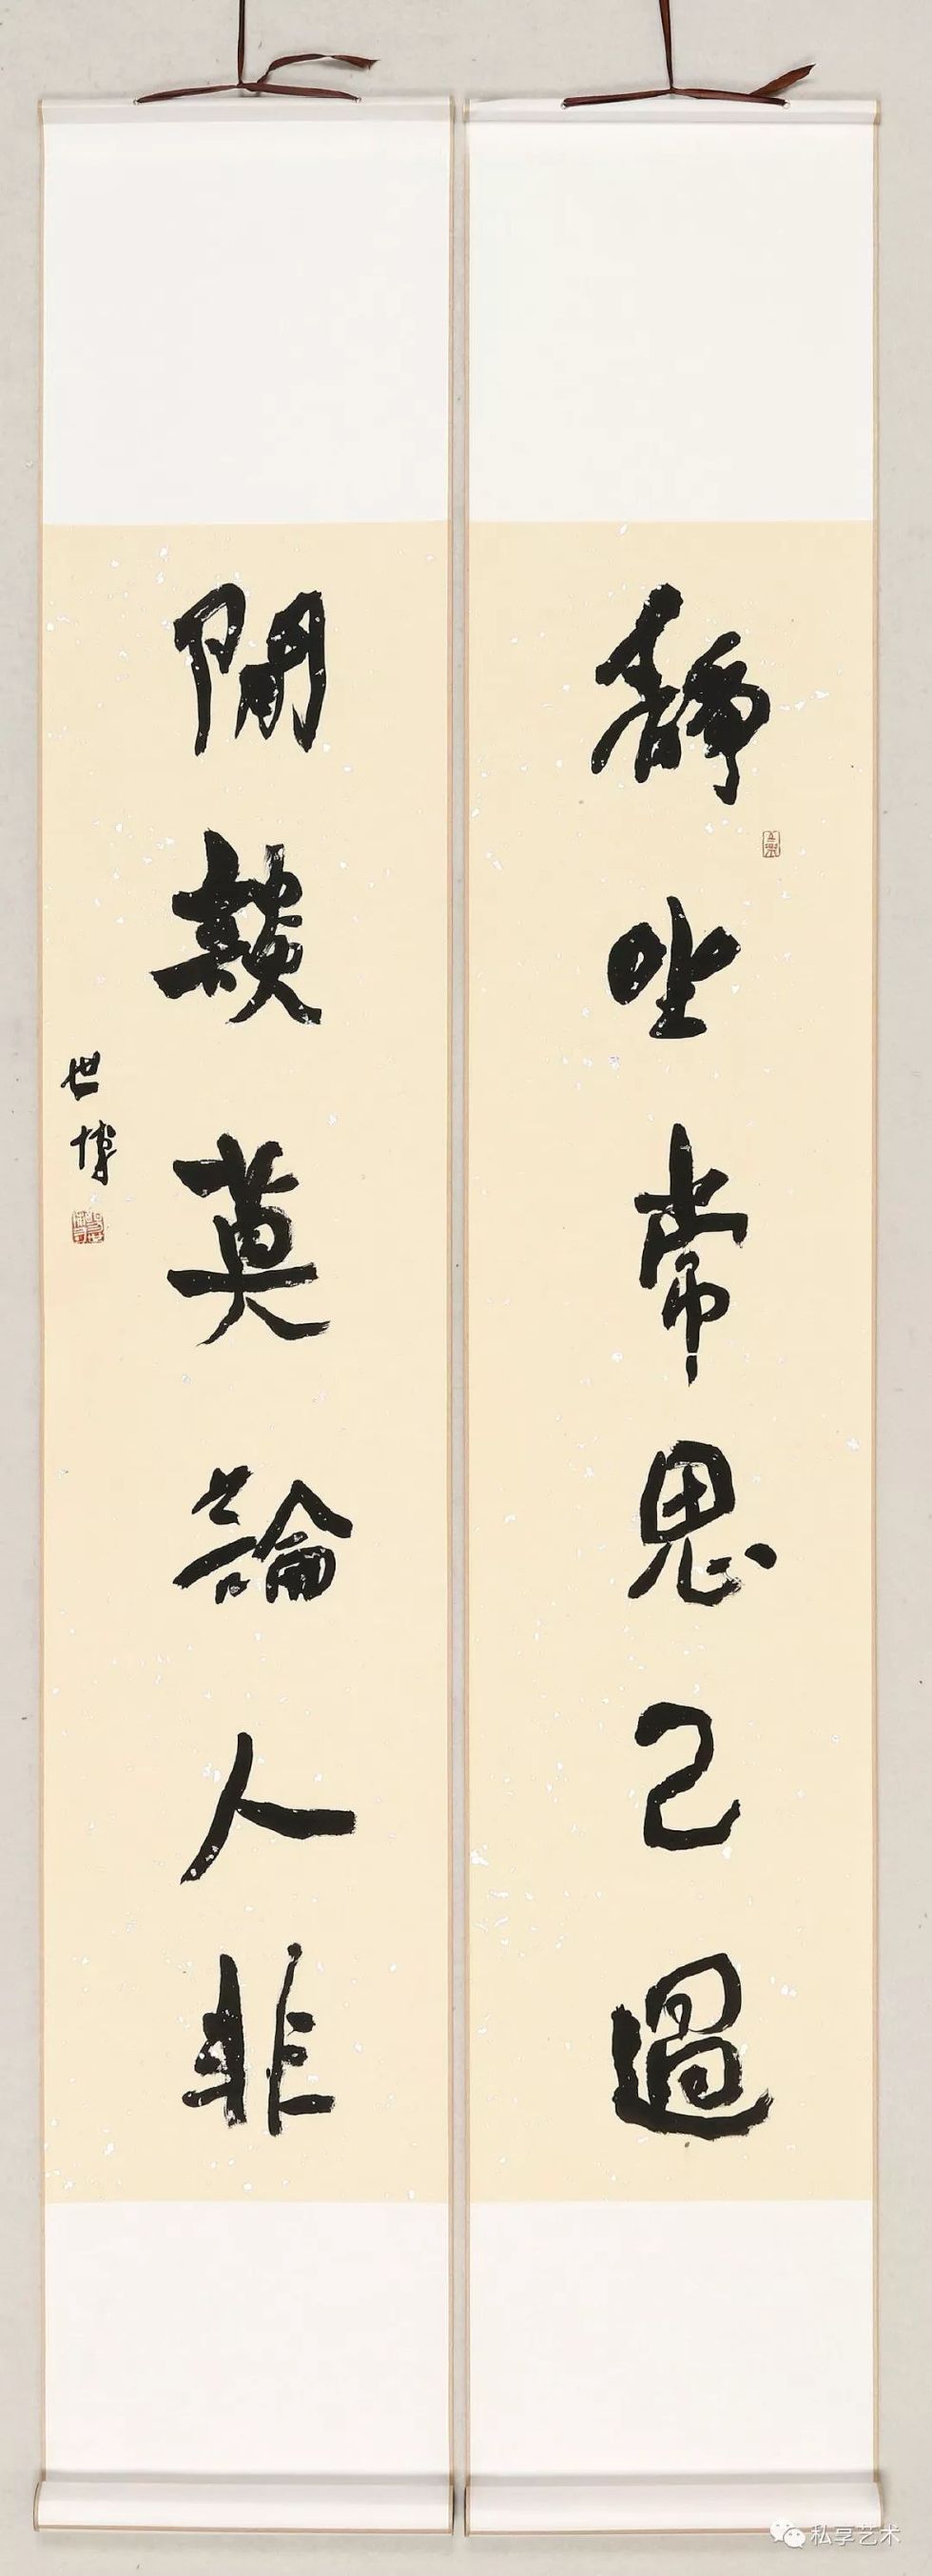 靜坐常思己過
閒談莫論人非
世博
私享艺术